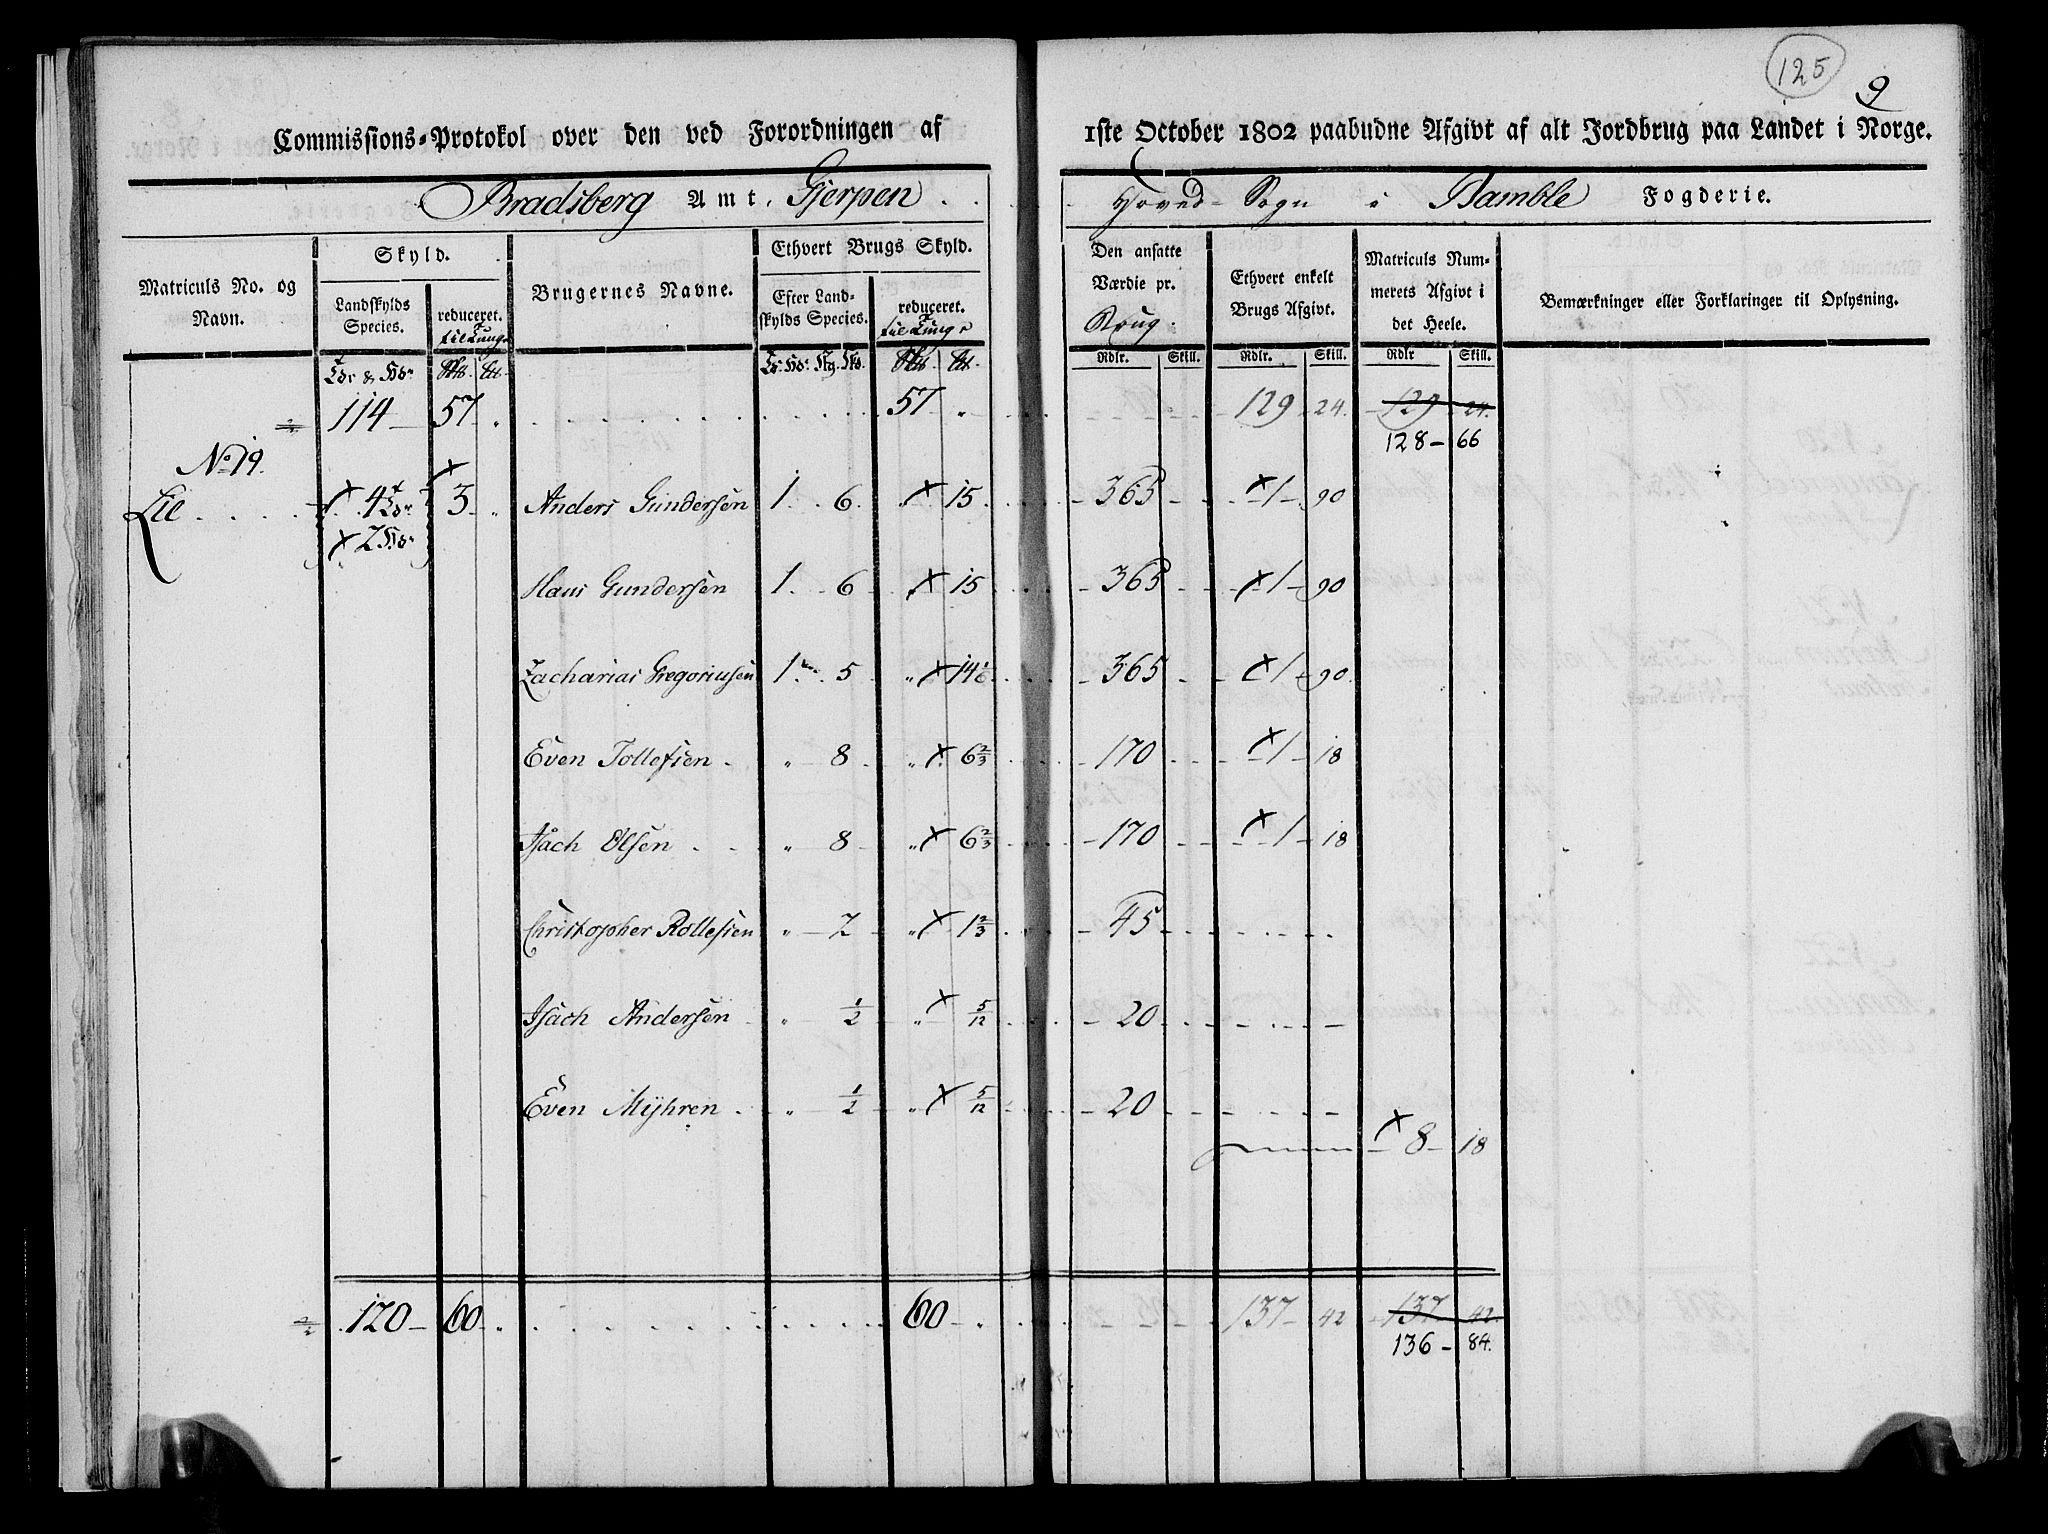 125
9
Commissions-Protokol over den ved Forordningen af 1ste October 1802 paabudne Afgivt af alt Jordbrug paa Landet i Norge.
Bradsberg Amt, Gjerpen Hoved-Sogn i Bamble Fogderie.
Matriculs No. og Navn.
Skyld.
Landskylds Species.
reduceret. til Tung
Brugernes Navne.
Ethvert Brugs Skyld.
Efter Landskylds Species.
reduceret. til Tung
Den ansatte Værdie pr. Brug.
Ethvert enkelt Brugs Afgivt.
Matriculs Nummerets Afgivt i det Heele.
Bemærkninger eller Forklaringer til Oplysning.
Rdlr. Skill. Rdlr. Skill. Rdlr Skill.
114 57 " 57 " 129 24. 129 24.
128 66
No 19.
Lie 4 3 " Anders Gundersen 1 6 " 15 365 1 90
2
Hans Gundersen 1 6 " 15 365 1 90
Zacharias Gregoriusen 1 5 " 14 1/6 365 1 90
Even Tollefsen " 8 " 6 2/3 170 1 18
Isach Olsen " 8 " 6 2/3 170 1 18
Christopher Rollefsen " 2 " 1 2/3 45
Isach Andersen " 1/2 " 5/12 20
Even Myhren " 1/2 " 5/12 20
8 18
120 60 " 60 " 137 42 137 42.
136 84.